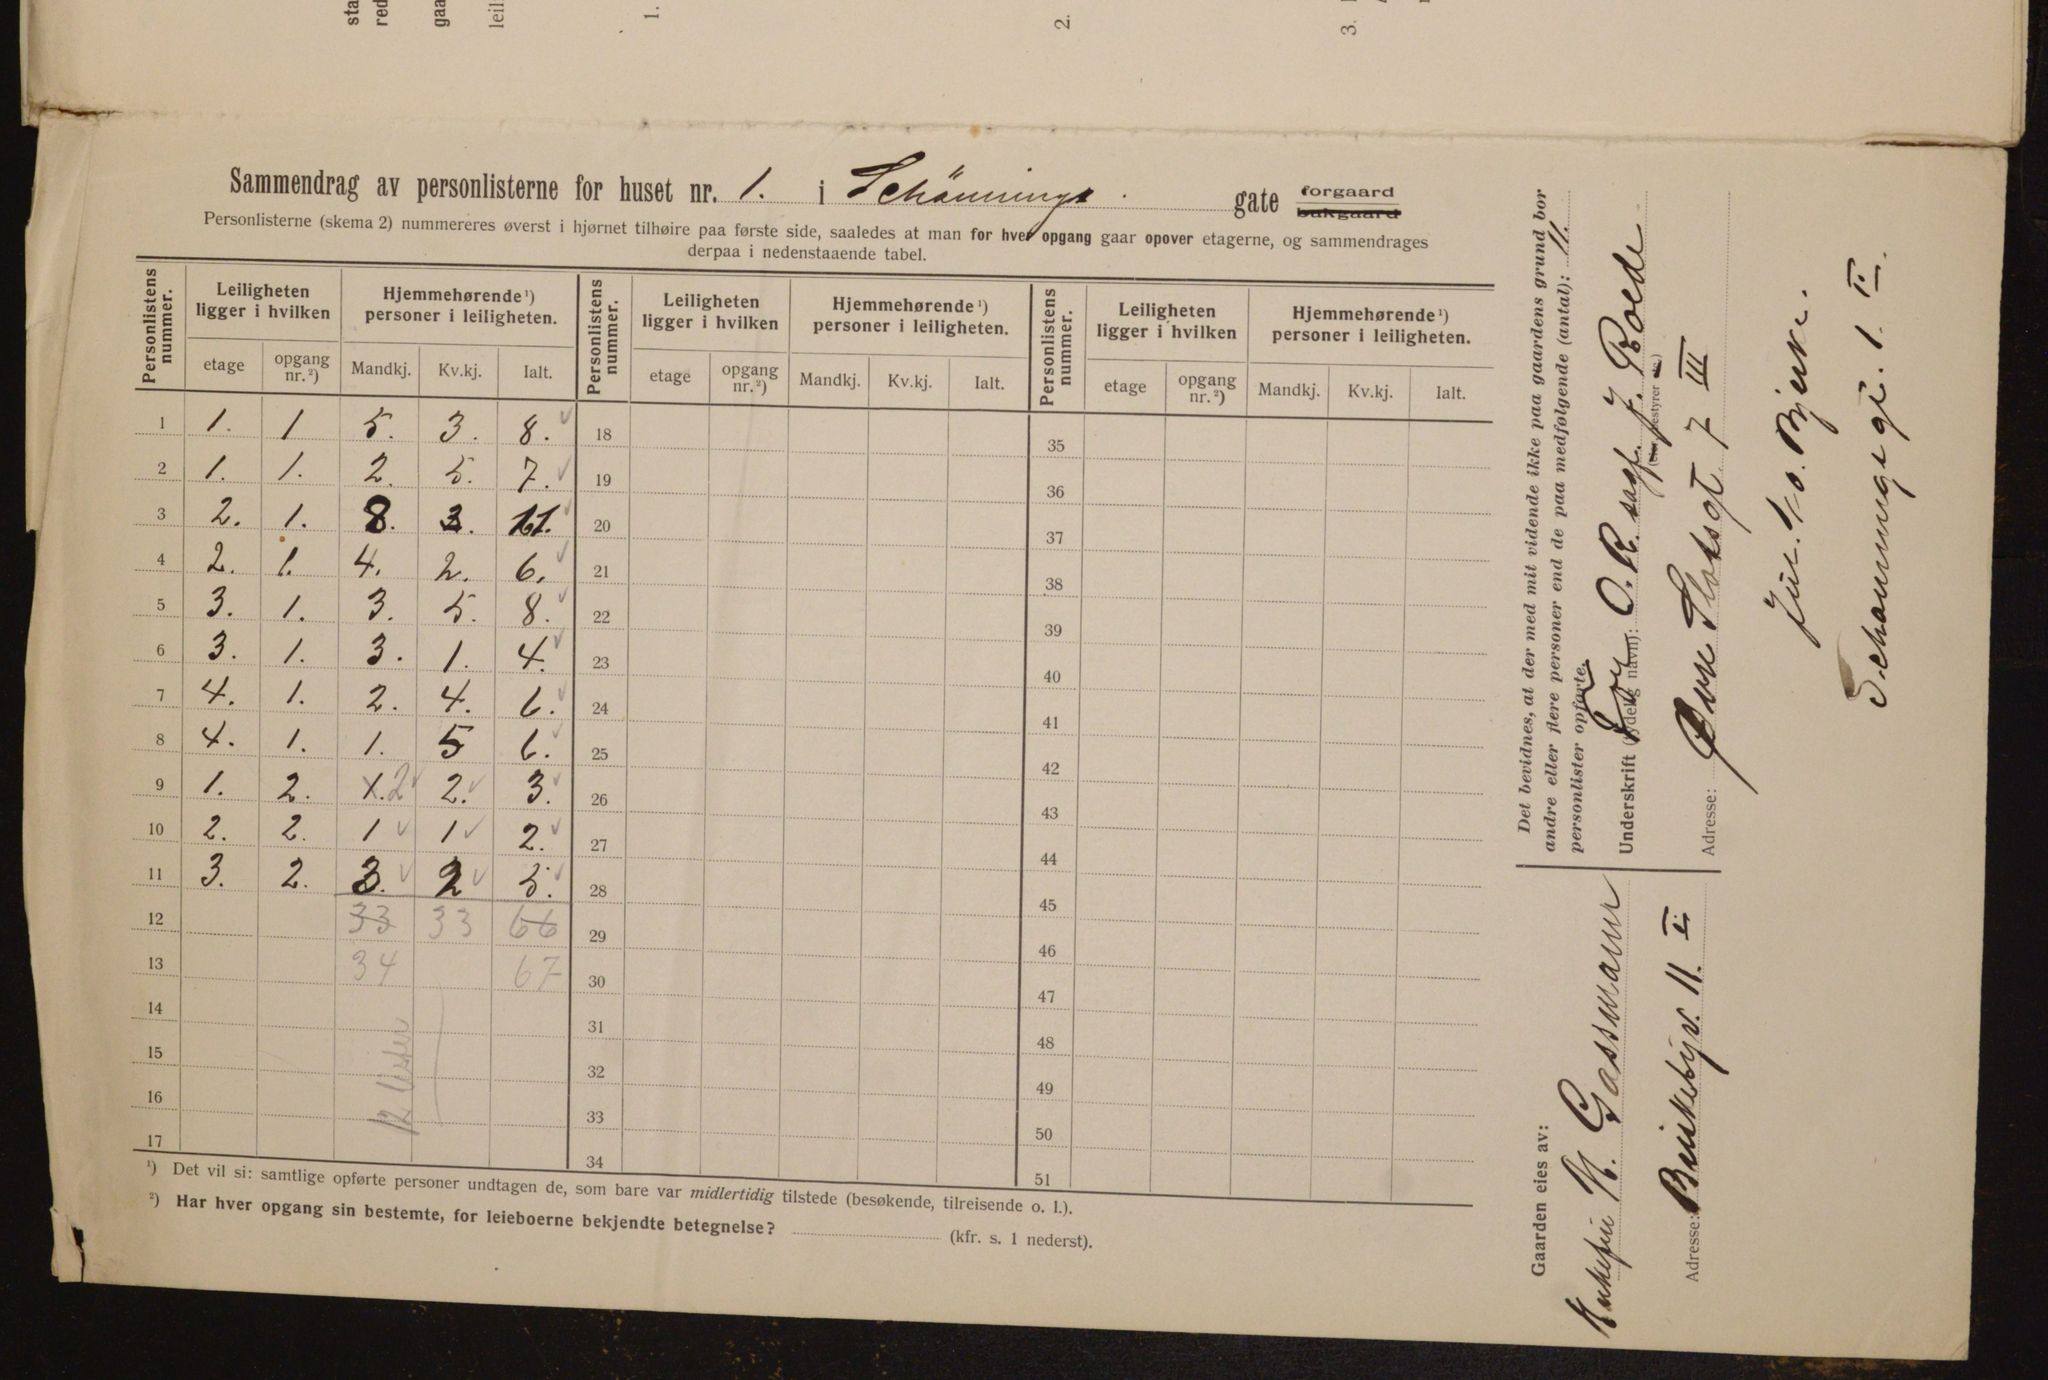 sta
red
gaa
leil
1.
2.
3.
Sammendrag av personlisterne for huset nr. 1. i Schønnings gate forgaard bakgaard
Personlisterne (skema 2) nummereres øverst i hjørnet tilhøire paa første side, saaledes at man for hver opgang gaar opover etagerne, og sammendrages
derpaa i nedenstaaende tabel.
Personlistens nummer. Leiligheten ligger i hvilken Hjemmehørende ¹) personer i leiligheten. Personlistens nummer. Leiligheten ligger i hvilken Hjemmehørende ¹) personer i leiligheten. Personlistens nummer. Leiligheten ligger i hvilken Hjemmehørende ¹) personer i leiligheten.
etage opgang nr. ²) Mandkj. Kv.kj. Ialt. etage opgang nr. ²) Mandkj. Kv.kj. Ialt. etage opgang nr. ²) Mandkj. Kv.kj. Ialt.
1 1. 1 5. 3. 8. 18 35
2 1. 1. 2. 5. 7. 19 36
3 2. 1. 8. 3. 11. 20 37
4 2. 1. 4. 2. 6. 21 38
5 3. 1. 3. 5. 8. 22 39
6 3. 1. 3. 1. 4. 23 40
7 4. 1. 2. 4. 6. 24 41
8 4. 1. 1. 5 6. 25 42
9 1. 2. 1. 2 2. 3. 26 43
10 2. 2. 1 1 2. 27 44
11 3. 2. 3. 2 5. 28 45
12 33 33 66 29 46
13 34 67 30 47
14 31 48
15 32 49
16 33 50
17 34 51
12 lister
¹) Det vil si: samtlige opførte personer undtagen de, som bare var midlertidig tilstede (besøkende, tilreisende o. l.).
²) Har hver opgang sin bestemte, for leieboerne bekjendte betegnelse? (kfr. s. 1 nederst).
Det bevidnes, at der med mit vidende ikke paa gaardens grund bor
andre eller flere personer end de paa medfølgende (antal): 11.
personlister opførte.
Underskrift (tydelig navn): for O. R. sagf. J. Roede
(eier, bestyrer
Adresse: Øvre Slotsgt. 7 III
Bjerke.
Schønningsgt. 1. I.
Gaarden eies av:
H. Gassmann
Adresse: Briskebyv. 11. I